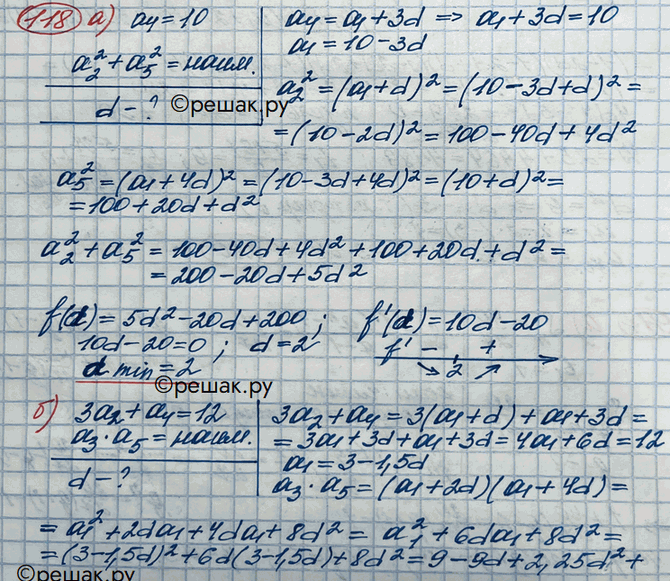 118 а) a4 = 10
a2² + a5² = наим.
d – ?
©решак.ру
a4 = a1 + 3d => a1 + 3d = 10
a1 = 10 – 3d
a2² = (a1 + d)² = (10 – 3d + d)² =
= (10 – 2d)² = 100 – 40d + 4d²
a5² = (a1 + 4d)² = (10 – 3d + 4d)² = (10 + d)² =
= 100 + 20d + d²
a2² + a5² = 100 – 40d + 4d² + 100 + 20d + d² =
= 200 – 20d + 5d²
f(d) = 5d² – 20d + 200 ; f'(d) = 10d – 20
10d – 20 = 0 ; d = 2
f' – +
2
d min = 2
©решак.ру
б) 3a2 + a4 = 12
a3 · a5 = наим.
d – ?
3a2 + a4 = 3(a1 + d) + a1 + 3d =
= 3a1 + 3d + a1 + 3d = 4a1 + 6d = 12
a1 = 3 – 1,5d
a3 · a5 = (a1 + 2d)(a1 + 4d) =
= a1² + 2da1 + 4da1 + 8d² = a1² + 6da1 + 8d² =
= (3 – 1,5d)² + 6d(3 – 1,5d) + 8d² = 9 – 9d + 2,25d² +
©решак.ру